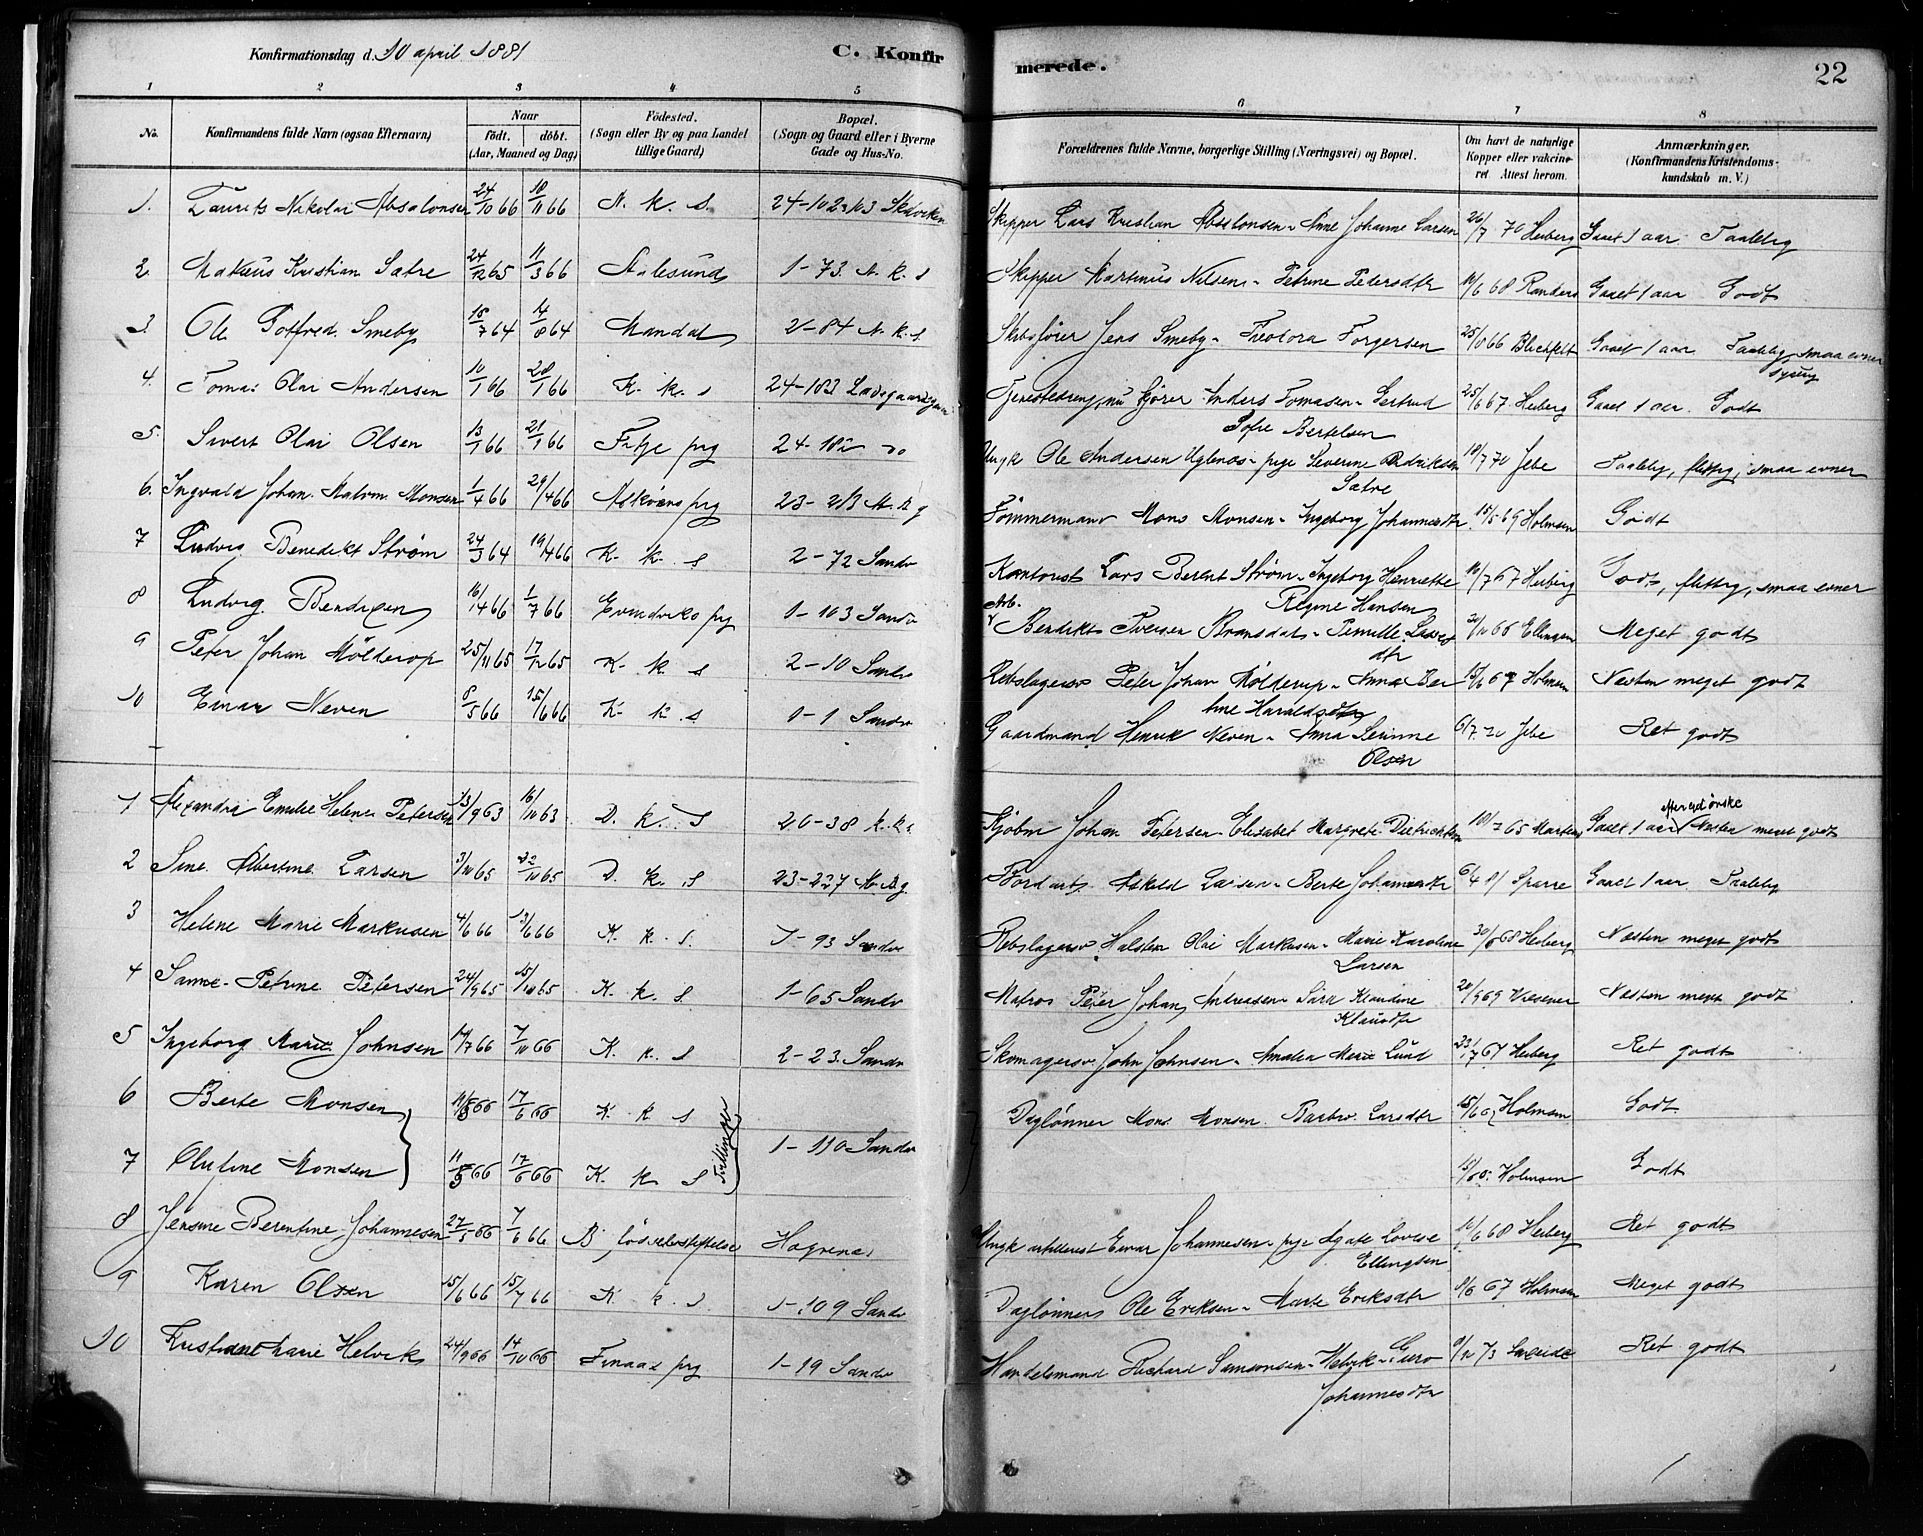 Konfirmationsdag d. 10 april 1881
C. Konfirmerede.
22
1 2 3 4 5 6 7 8
No. Konfirmandens fulde Navn (ogsaa Efternavn) Naar födt. döbt. (Aar, Maaned og Dag) Födested. (Sogn eller By og paa Landet tillige Gaard) Bopæl. (Sogn og Gaard eller i Byerne Gade og Hus-No. Forældrenes fulde Navne, borgerlige Stilling (Næringsvei) og Bopæl. Om havt de naturlige Kopper eller vakcineret Attest herom. Anmærkninger. (Konfirmandens Kristendomskundskab m. V.)
1. Laurits Nikolai Absalonsen 24/10 66 18/11 66 N. k. s. 24-102, 103 Skipper Lars Kristian Absalonsen - Anne Johanne Larsen 26/7 70 Heiberg Gaaet 1 aar. Taalelig
2. Mateus Kristian Sætre 24/12 65 11/3 66 Aalesund 1-73. N. k. s Skipper Martinus Nilsen - Petrine Pedersdtr 68 Randers Gaaet 1 aar Godt
3. Ole Gotfred Smeby 15/7 64 14/8 64 Mandal 2-84 N. k. s Skibsfører Jens Smeby - Teodora Torgersen 66 Blichfelt Gaaet 1 aar Taalelig smaa evner
4. Tomas Olai Andersen 10/1 66 28/1 66 K. k. s 24-183 Ladegaardsgaden Tjenestedreng, nu kjører Anders Tomasen - Gertrud Tofre Bertelsen 25/6 67 Heiberg Gaaet 1 aar. Godt
5. Sivert Olai Olsen 13/1 66 21/1 66 Fitje prg 24-182 do Ungk Ole Andersen Uglenæs - pige Severine Sætre 18/7 70 Jebe Taalelig, flittig, smaa evner
6. Ingvald Johan Malvin Monsen 1/4 66 29/4 66 Askøens prg 23-213 Tømmermand Mons Monsen - Ingeborg Johannesdtr 15/5 69 Holmsen Godt
7 Ludvig Benedikt Strøm 24/3 64 19/4 66 K. k. s 2-72 Sandv Kontorist Lars Berent Strøm - Ingeborg Henriette Regine Hansen 16/7 67 Heiberg Godt, flittig, smaa evner
8 Ludvig Bendixen 16/4 66 1/7 66 Evindviks prg 1-103 Sandv Arb. Bendikt Iversen - Pernille Lassedtr 66 Ellingsen Meget godt
9 Peter Johan Mölderop 25/11 65 17/12 65 K. k. s 2-10 Sandv Rebslagersv Peter Johan Mölderup - Anna Bertine Haraldsdtr 15/6 67 Holmsen Næsten meget godt
10 Einar Neven 8/5 66 15/6 66 K. k. s 1-1 Sandv Gaardmand Henrik Neven - Anna Serinne Olsen 6/7 70 Jebe Ret godt
1 Alexandra Emilie Helene Petersen 13/9 63 16/10 63 D. k. s 20-38 k. k. s Kjøbm Johan Petersen - Elisabet Margrete Dietrichson 10/7 65 Martens Gaaet 1 aar efter eget ønske Næsten meget godt
2 Sine Albertine Larsen 3/10 65 22/10 65 D. k. s 23-227 Askild Larsen - Berte Johannesdtr 6/4 81 Sparre Gaaet 1 aar Taalelig
3 Helene Marie Markusen 4/6 66 13/6 66 K. k. s. 1-93 Sandv Rebslagersv Halsten Olai Markusen - Marie Karoline Larsen 68 Heiberg Næsten meget godt
4 Sanne Petrine Petersen 24/9 65 15/10 65 K. k. s 1-65 Sandv Matros Peter Johan Andreasen - Sara Klaudine Klausdtr 20/9 69 Wesener Næsten meget godt
5 Ingeborg Marie Johnsen 17/7 66 7/10 66 K. k. s 2-23 Sandv Skomagersv John Johnsen - Amalia Marie Lund 67 Heiberg Ret godt
6 Berte Monsen 11/5 66 17/6 66 K. k. s Tvillinger 1-110 Sandv Dagløner Mons Monsen. Barbro Larsdtr Holmsen Godt
7 Olufine Monsen 11/5 66 17/6 66 K. k s Holmsen Godt
8 Jensine Berentine Johannesen 27/5 66 7/6 66 B. fødselsstiftelse Ungk artillerist Einar Johannesen - pige Agate Lovise Ellingsen 68 Heiberg Ret godt
9 Karen Olsen 15/6 66 15/7 66 K. k. s 1-109 Sandv Daglønner Ole Eriksen - Marte Eriksdtr 67 Holmsen Meget godt
10 Kristiane Marie Helvik 24/9 66 14/10 66 Finaas prg 1-19 Sandv Handelsmand Richard Samsonsen Helvik - Guro Johannesdtr 73 Ret godt